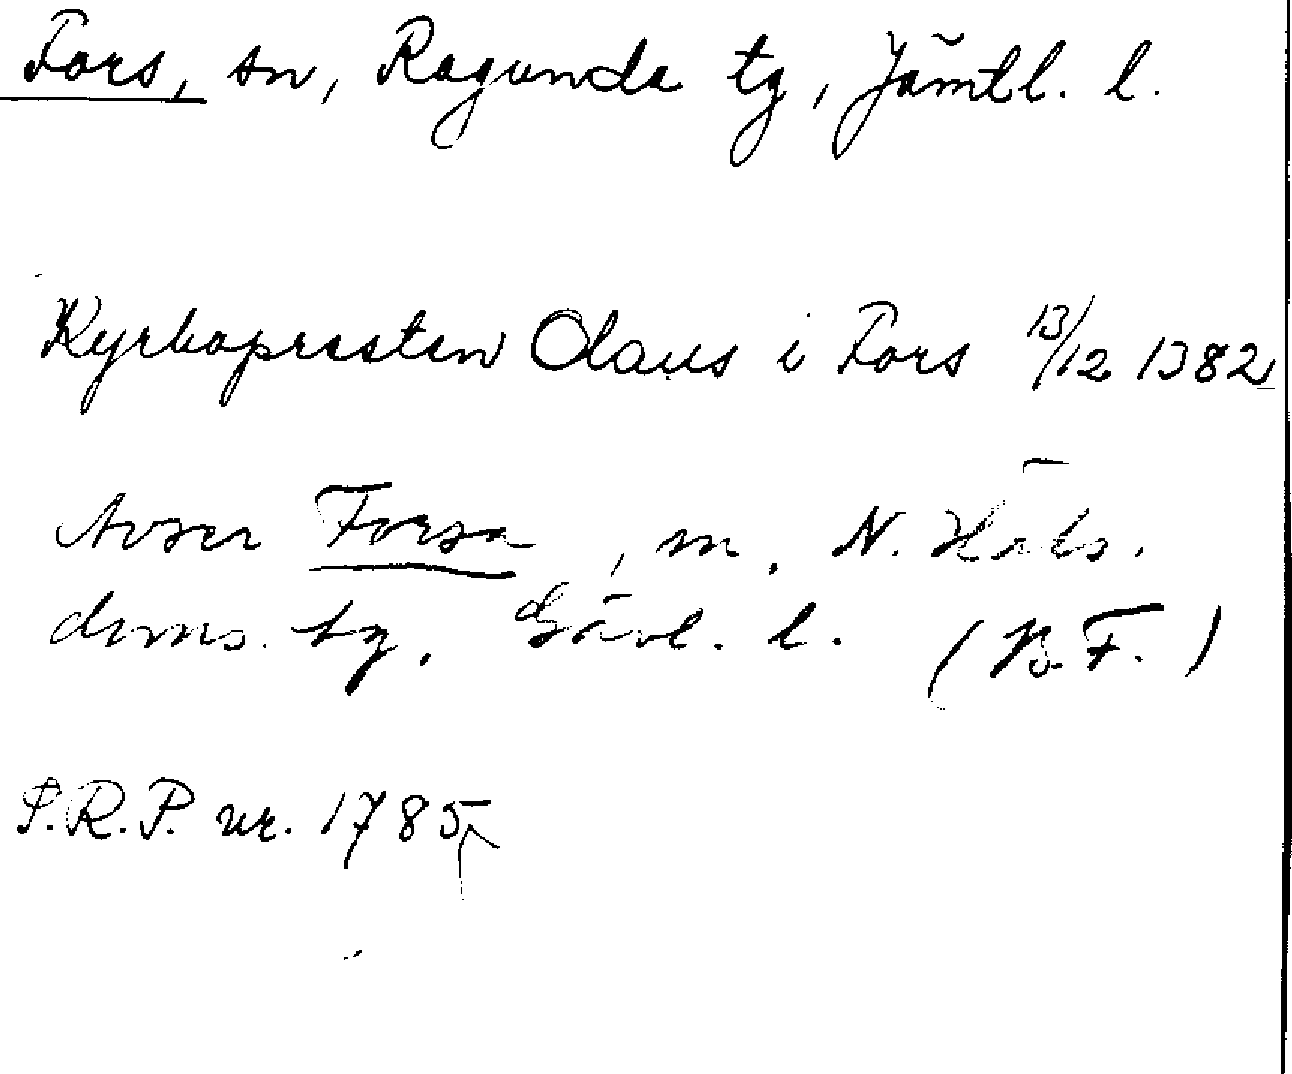 Fors, sn, Ragunda tg, Jämtl. l.
Kyrkopresten Olaus i Fors 13/12 1382
Avser Forsa, sn, N. Häls.
doms. tg, Gävl. l. (B.F.)
S.R.P. nr. 1785